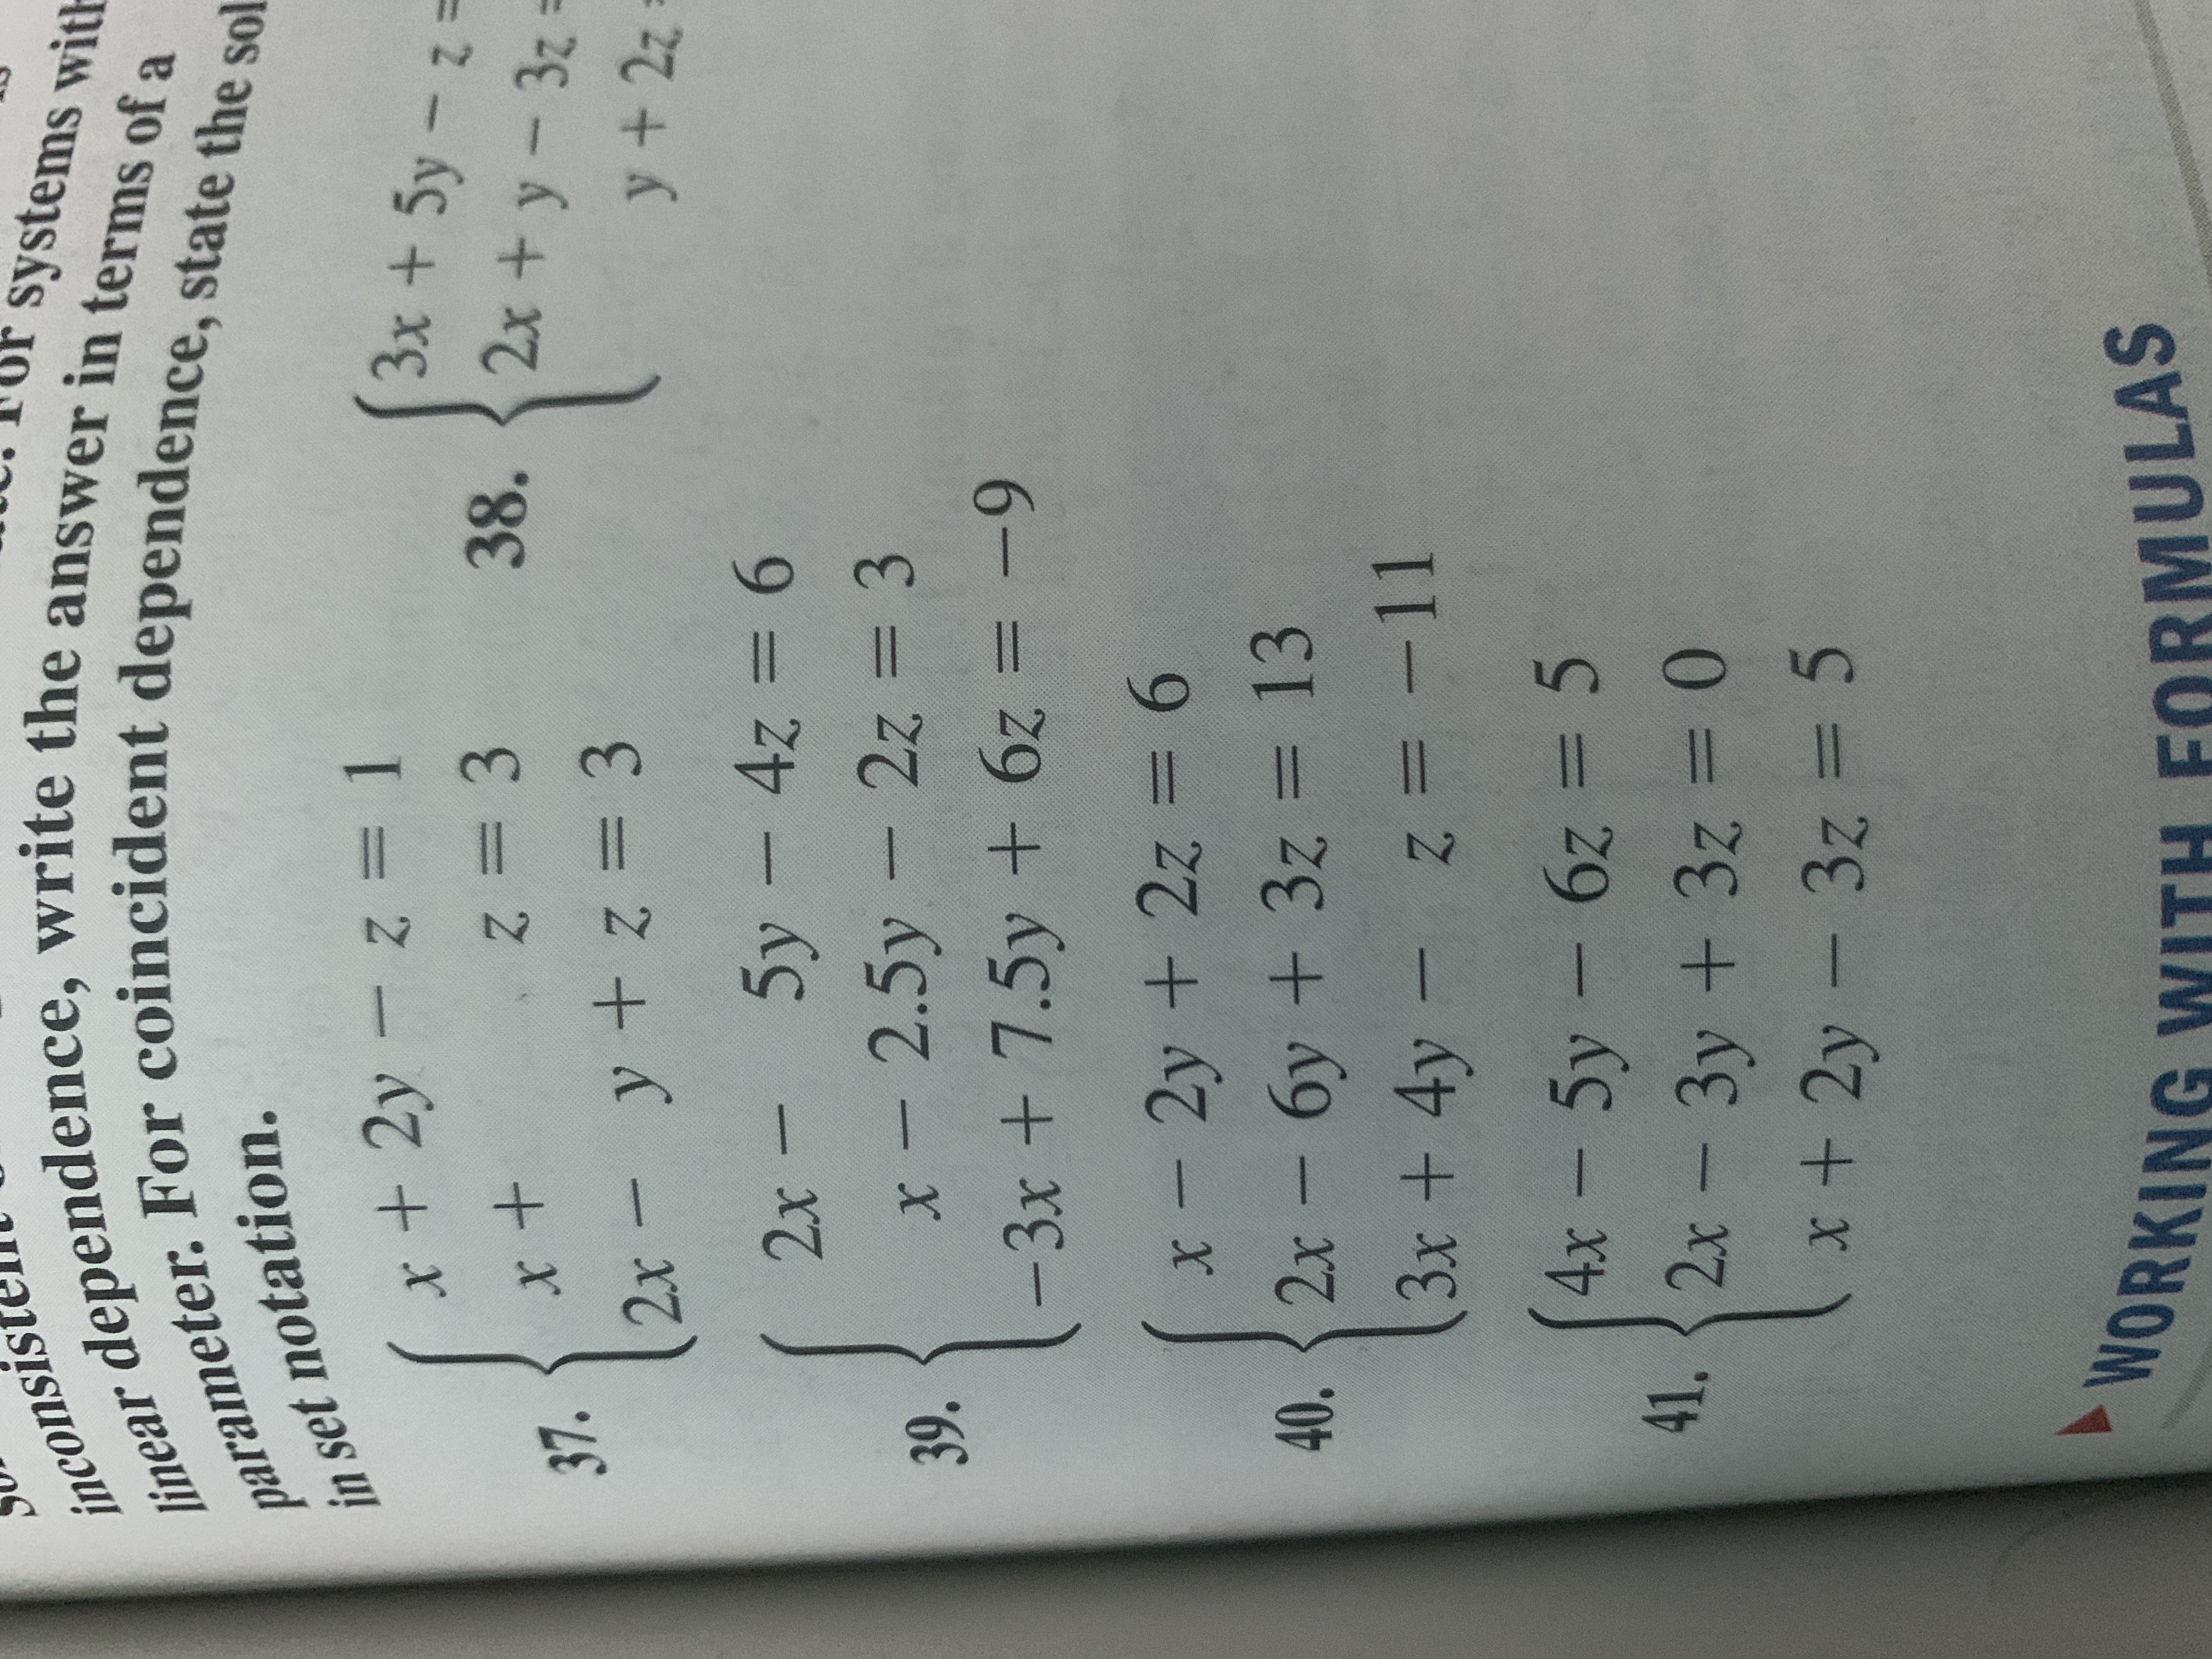 linear dependence, write the answer in terms of a
parameter. For coincident dependence, state the
in set notation.
37.
x + 2y − z = 1
x + z = 3
2x − y + z = 3
38.
3x + 5y − z =
2x + y − 3z =
y + 2z
39.
2x − 5y − 4z = 6
x − 2.5y − 2z = 3
−3x + 7.5y + 6z = −9
40.
x − 2y + 2z = 6
2x − 6y + 3z = 13
3x + 4y − z = −11
41.
4x − 5y − 6z = 5
2x − 3y + 3z = 0
x + 2y − 3z = 5
WORKING WITH FORMULAS